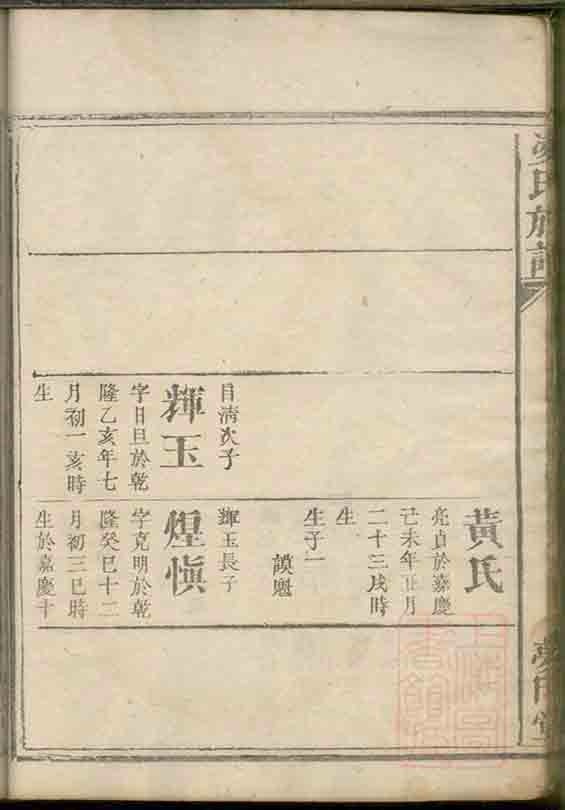 氏族譜
黃氏
亮貞於嘉慶
己未年正月
二十三戌時
生
生子一
謨魁
目清次子
輝玉
字日旦於乾
隆乙亥年七
月初一亥時
生
輝玉長子
煌慎
字克明於乾
隆癸巳十二
月初三巳時
生於嘉慶十